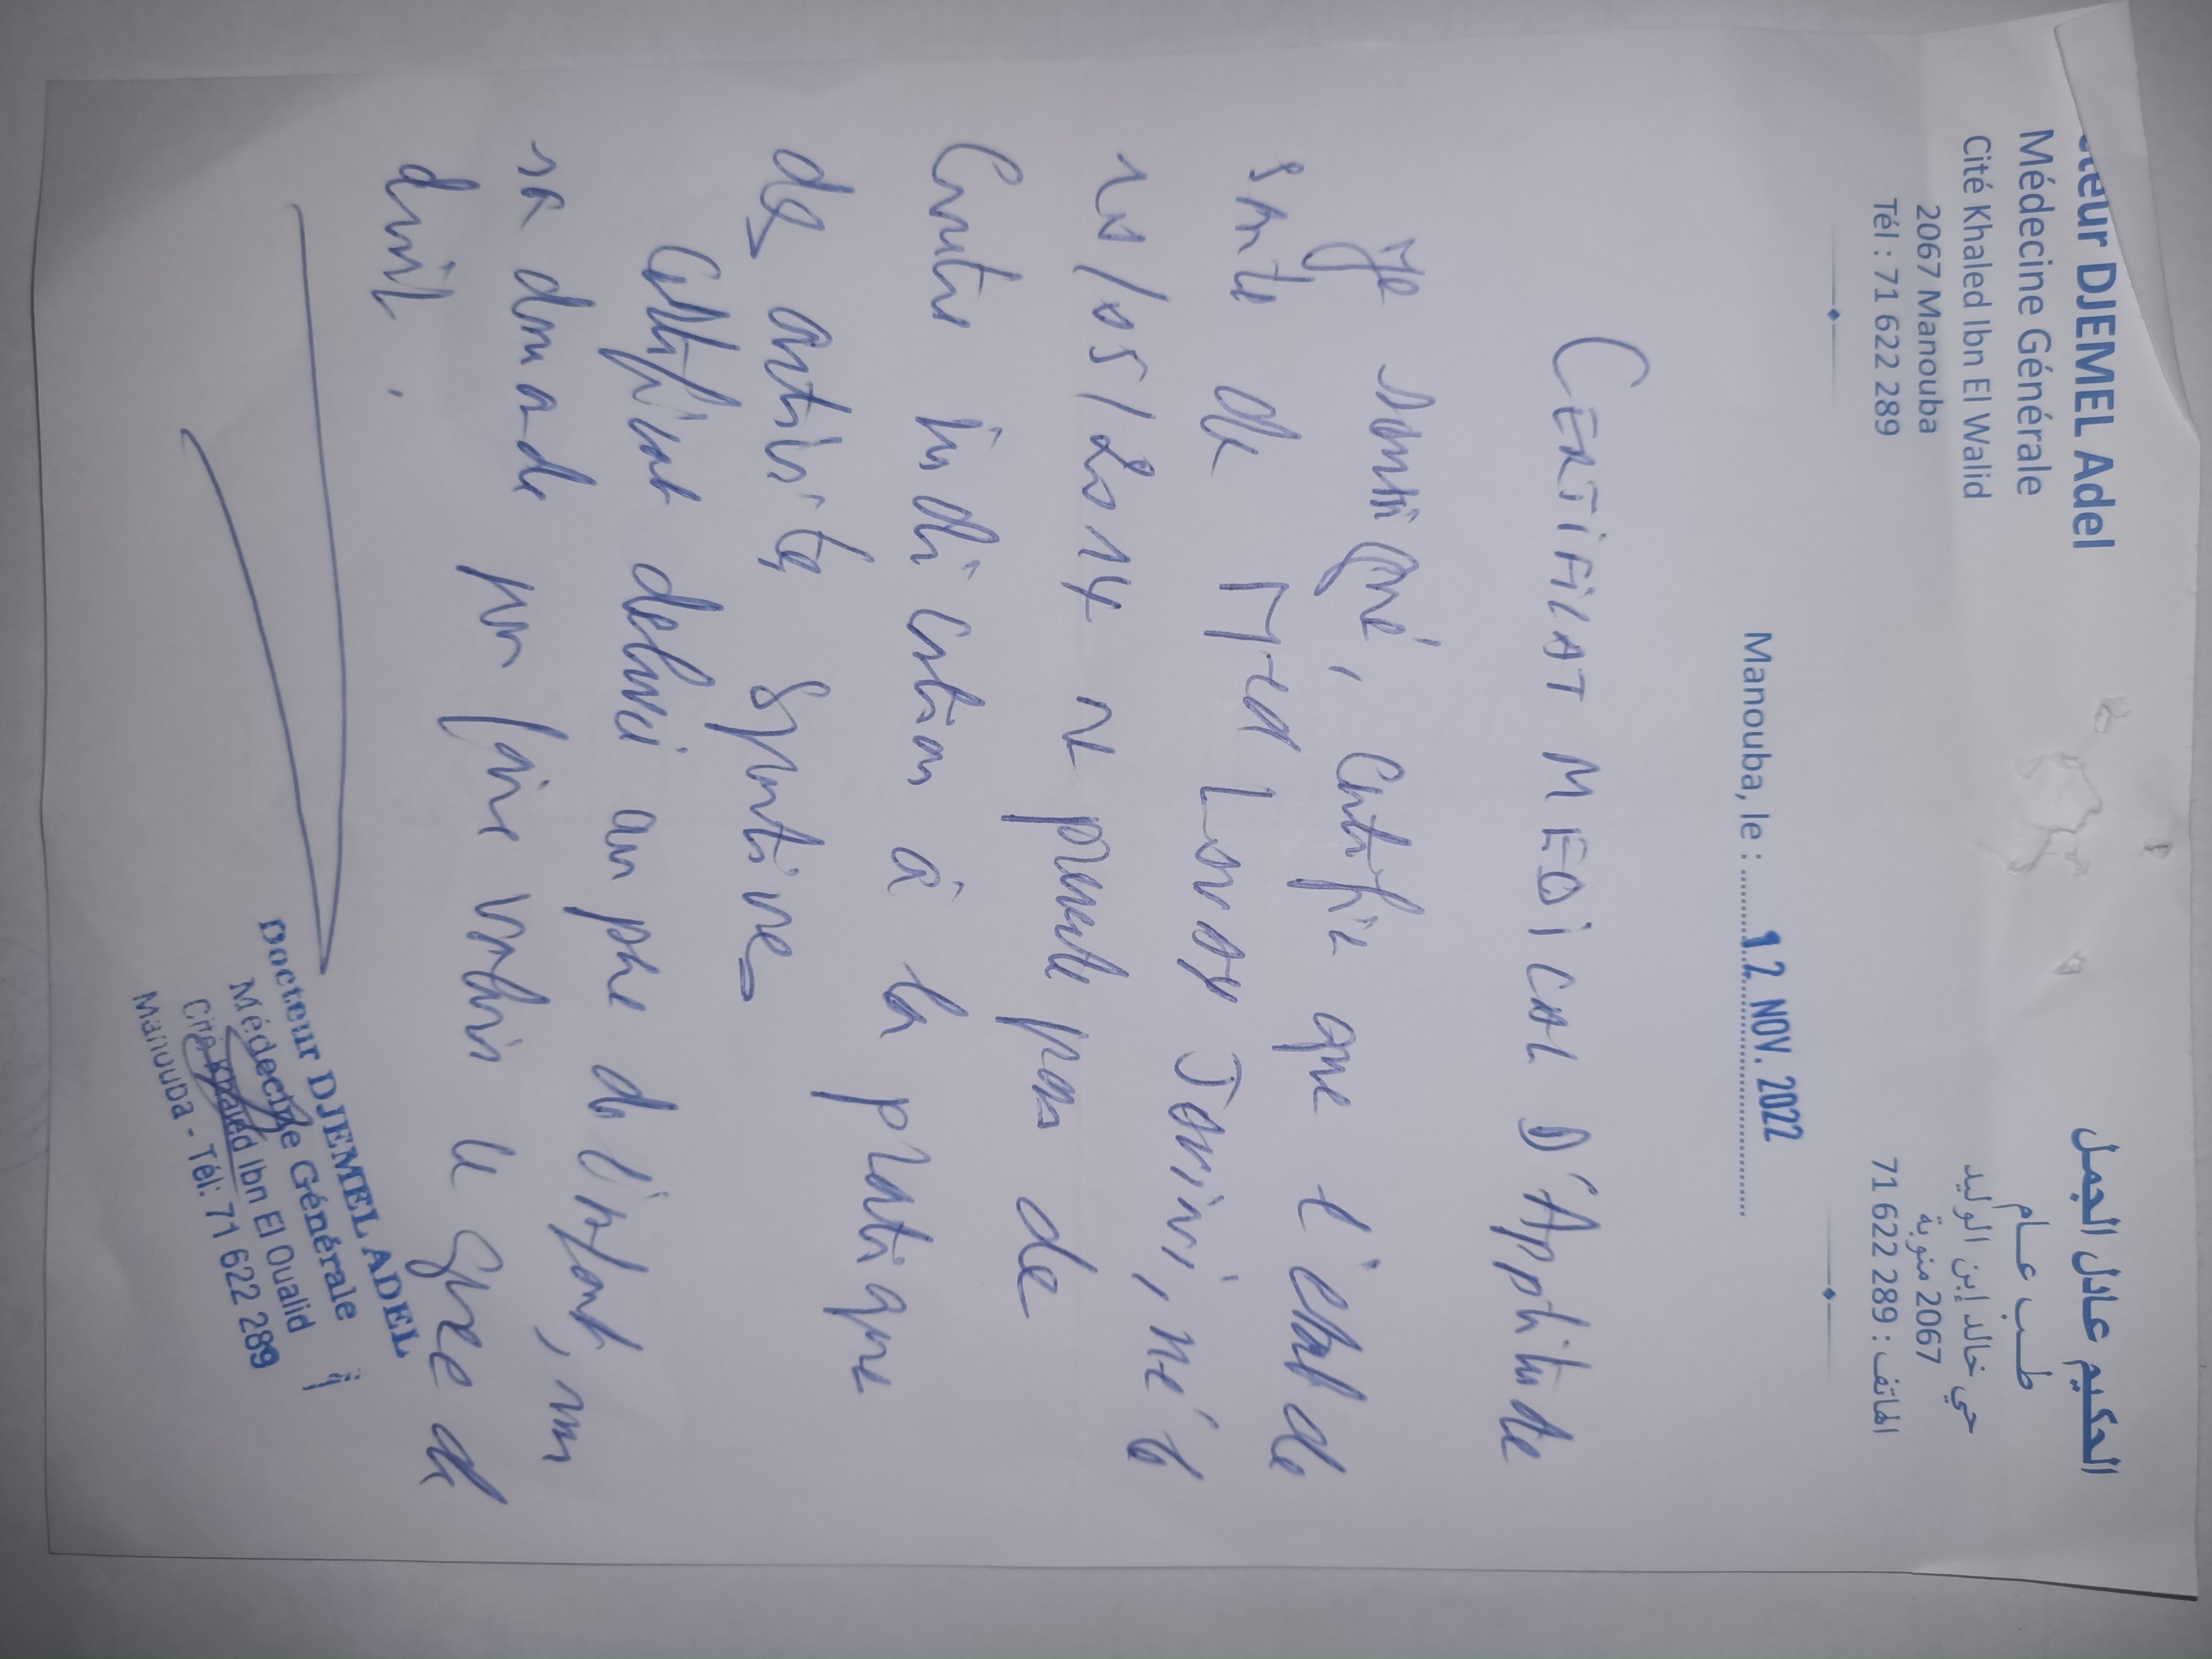 Docteur DJEMEL Adel
Médecine Générale
Cité Khaled Ibn El Walid
2067 Manouba
Tél : 71 622 289
الحكيم عادل الجمل
طب عام
حي خالد إبن الوليد
2067 منوبة
الهاتف : 289 622 71
Manouba, le : 12 NOV. 2022
CERTIFICAT MEDICAL D'Aptitude
Je soussigné, Certifie que l'état de
santé de Med Jouini, né le
/05/2014 ne présente pas de
Contre indication à la pratique
des activités sportives
Certificat délivré au père de l'enfant, sur
sa demande pour faire valoir le que de
droit.
Docteur DJEMEL ADEL
Médecine Générale
Cité Khaled Ibn El Oualid
Manouba - Tél: 71 622 289